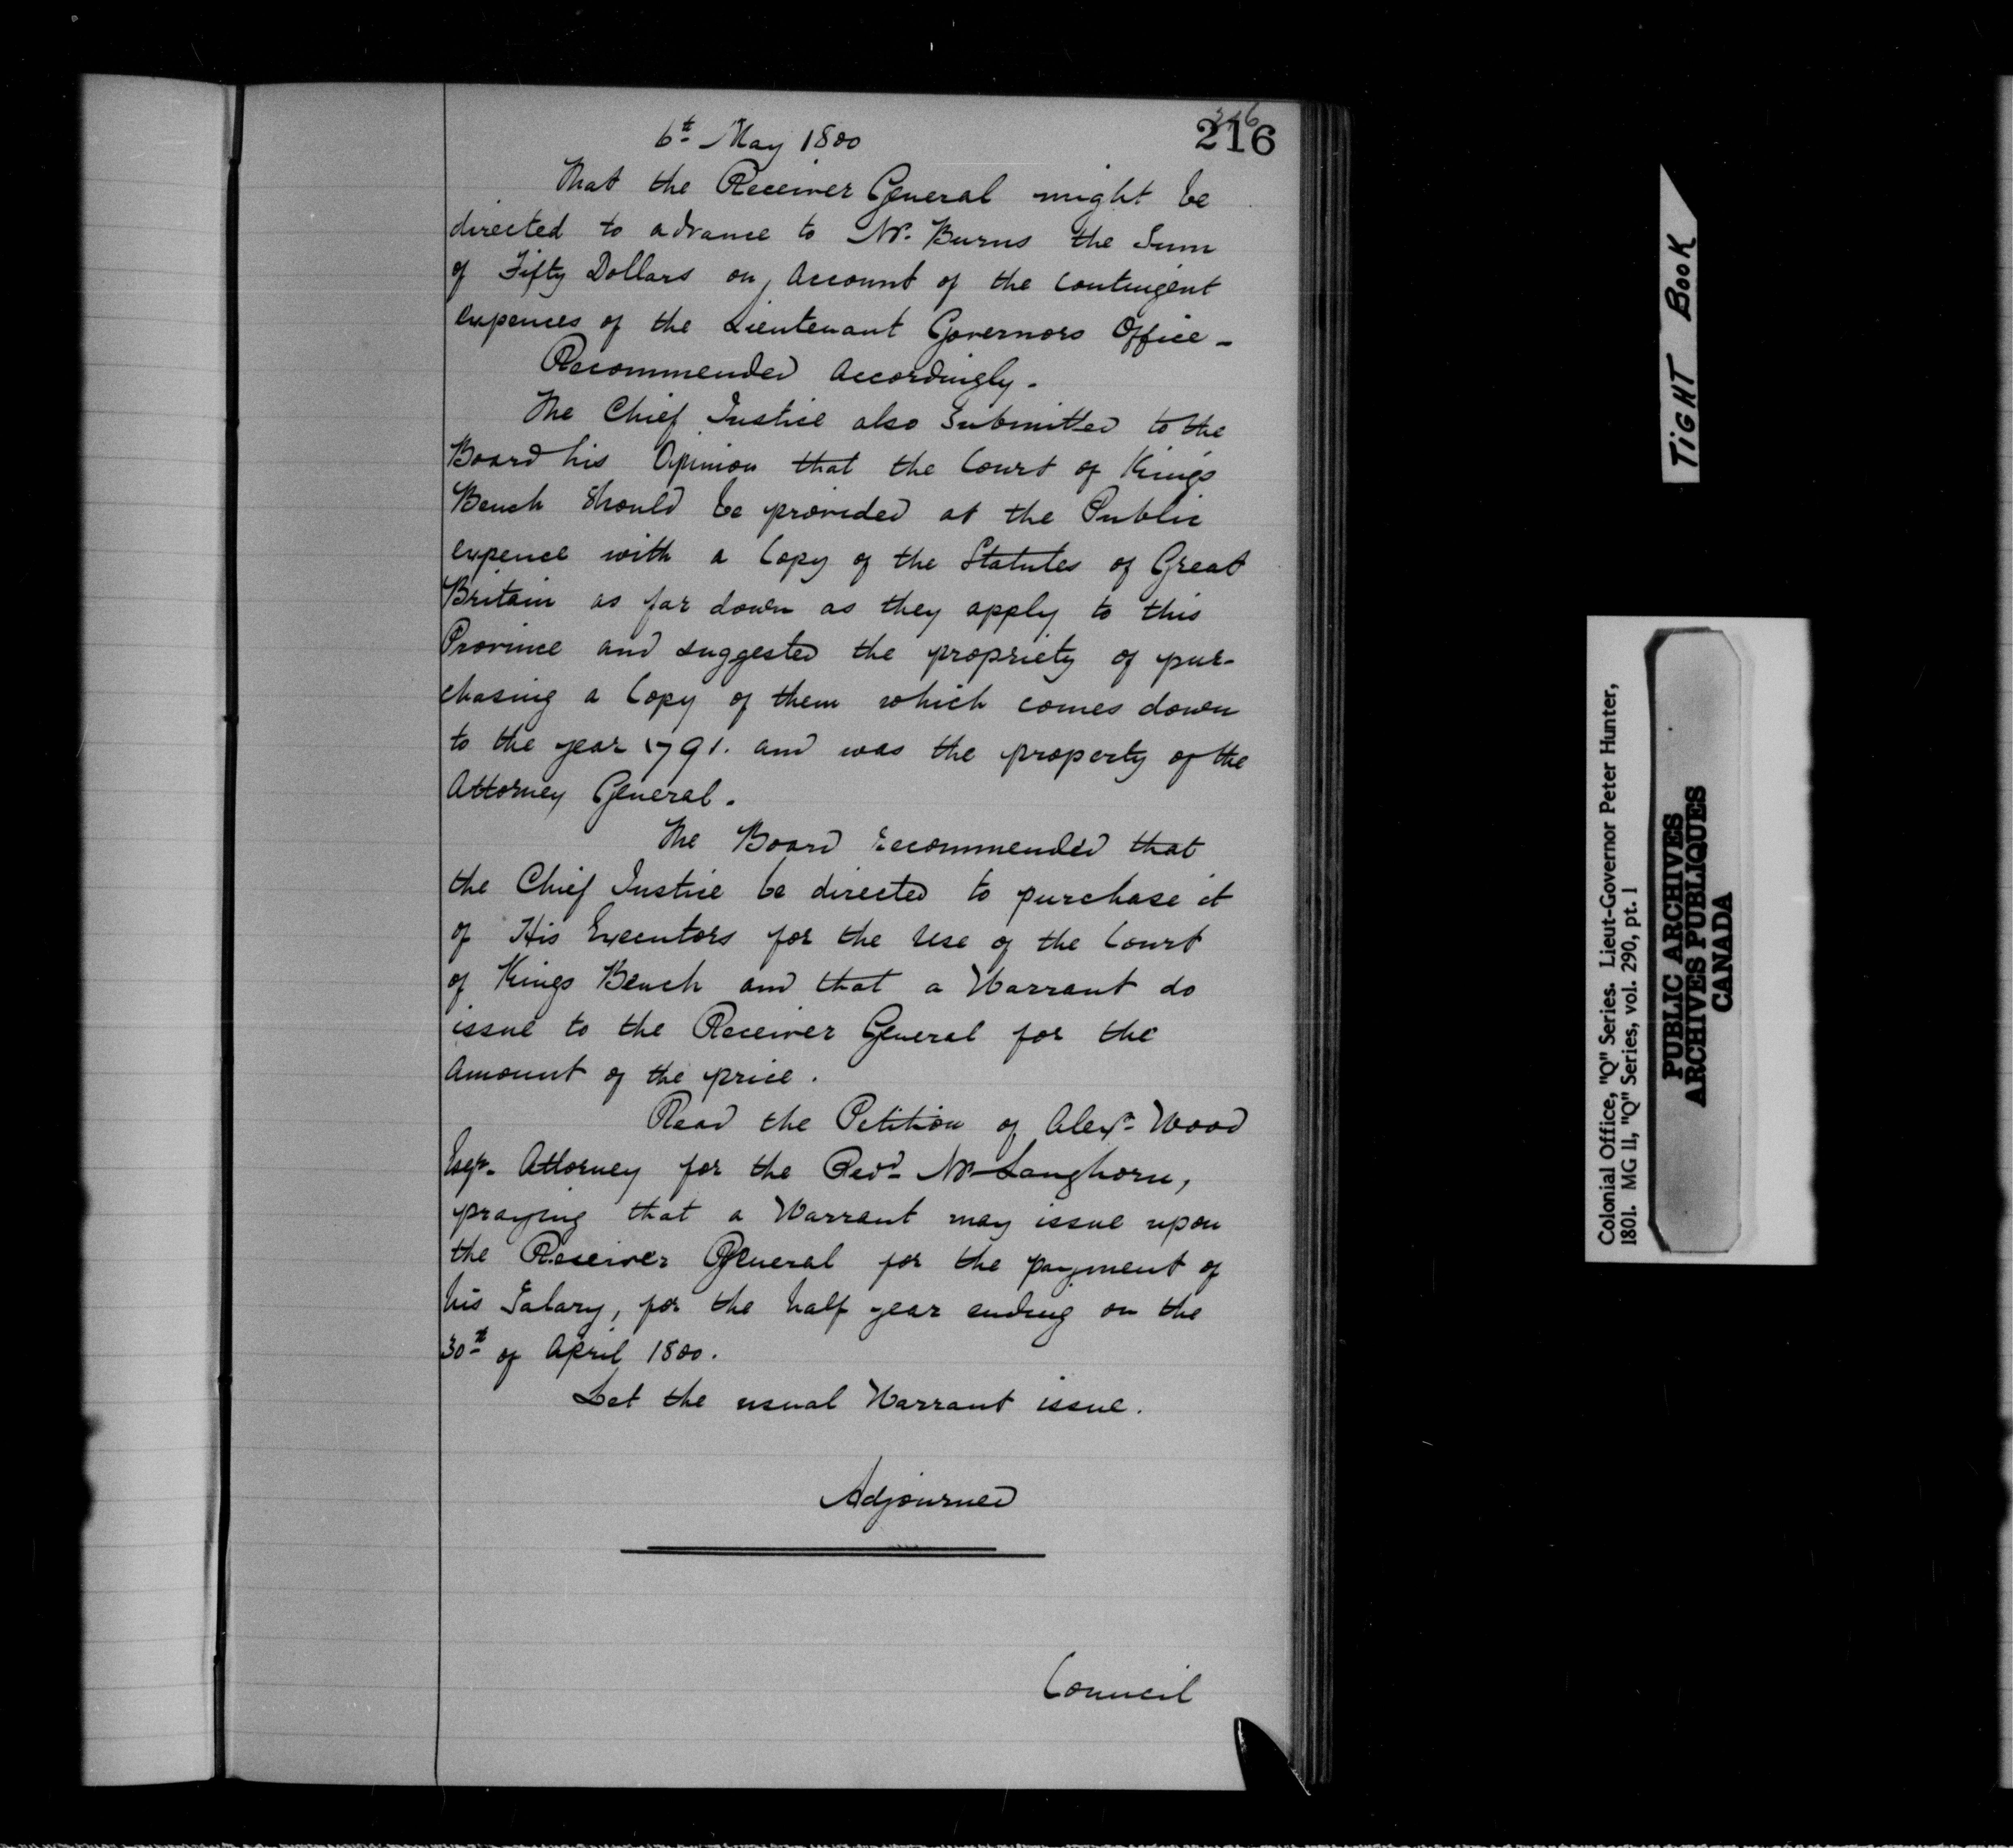 216
6th May 1800
That the Receiver General might be
directed to advance to Mr. Burns the Sum
of Fifty Dollars on, Account of the Contingent
expences of the Lieutenant Governors Office -
Recommended Accordingly.
The Chief Justice also Submitted to the
Board his Opinion that the Court of Kings
Bench Should be provided at the Public
expence with a Copy of the Statutes of Great
Britain as far down as they apply to this
Province and suggested the propriety of pur-
chasing a Copy of them which comes down
to the year 1791. and was the property of the
Attorney General.
The Board recommended that
the Chief Justice be directed to purchase it
of His Executors for the Use of the Court
of Kings Bench and that a Warrant do
issue to the Receiver General for the
Amount of the price.
Read the Petition of Alexr. Wood
Esqr. Attorney for the Revd. Mr Langhorn,
praying that a Warrant may issue upon
the Receiver General for the payment of
his Salary, for the half year ending on the
30th of April 1800.
Let the usual Warrant issue.
Adjourned
Council
TIGHT BOOK
Colonial Office, "Q" Series. Lieut-Governor Peter Hunter,
1801. MG 11, "Q" Series, vol. 290, pt. 1
PUBLIC ARCHIVES
ARCHIVES PUBLIQUES
CANADA